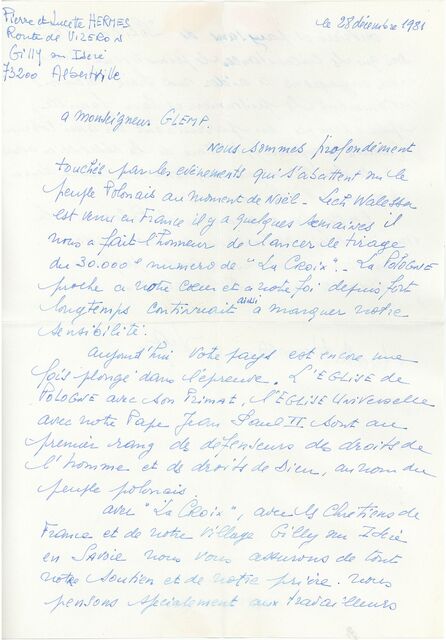 Pierre et Lucette HERMES
Route de VIZERON
Gilly sur Isère
73200 Albertville
le 28 décembre 1981
a Monseigneur GLEMP.
Nous sommes profondément
touchés par les evénements qui s'abattent sur le
peuple Polonais au moment de Noël - Lech Walessa
est venu en France il y a quelques semaines il
nous a fait l'honneur de lancer le tirage
du 30.000e numero de "La Croix". - La POLOGNE
proche a notre cœur et a notre foi depuis fort
longtemps continuait aussi a marquer notre
sensibilité.
aujourd'hui votre pays est encore une
fois plongé dans l'épreuve. L'EGLISE de
POLOGNE avec son Primat, l'EGLISE Universelle
avec notre Pape Jean Paul II sont au
premier rang de défenseurs des droits de
l'homme et de droits de Dieu, au nom du
peuple polonais.
avec "La Croix", avec les Chrétiens de
France et de notre village Gilly sur Isère
en Savoie nous vous assurons de tout
notre soutien et de notre prière. nous
pensons spécialement aux travailleurs